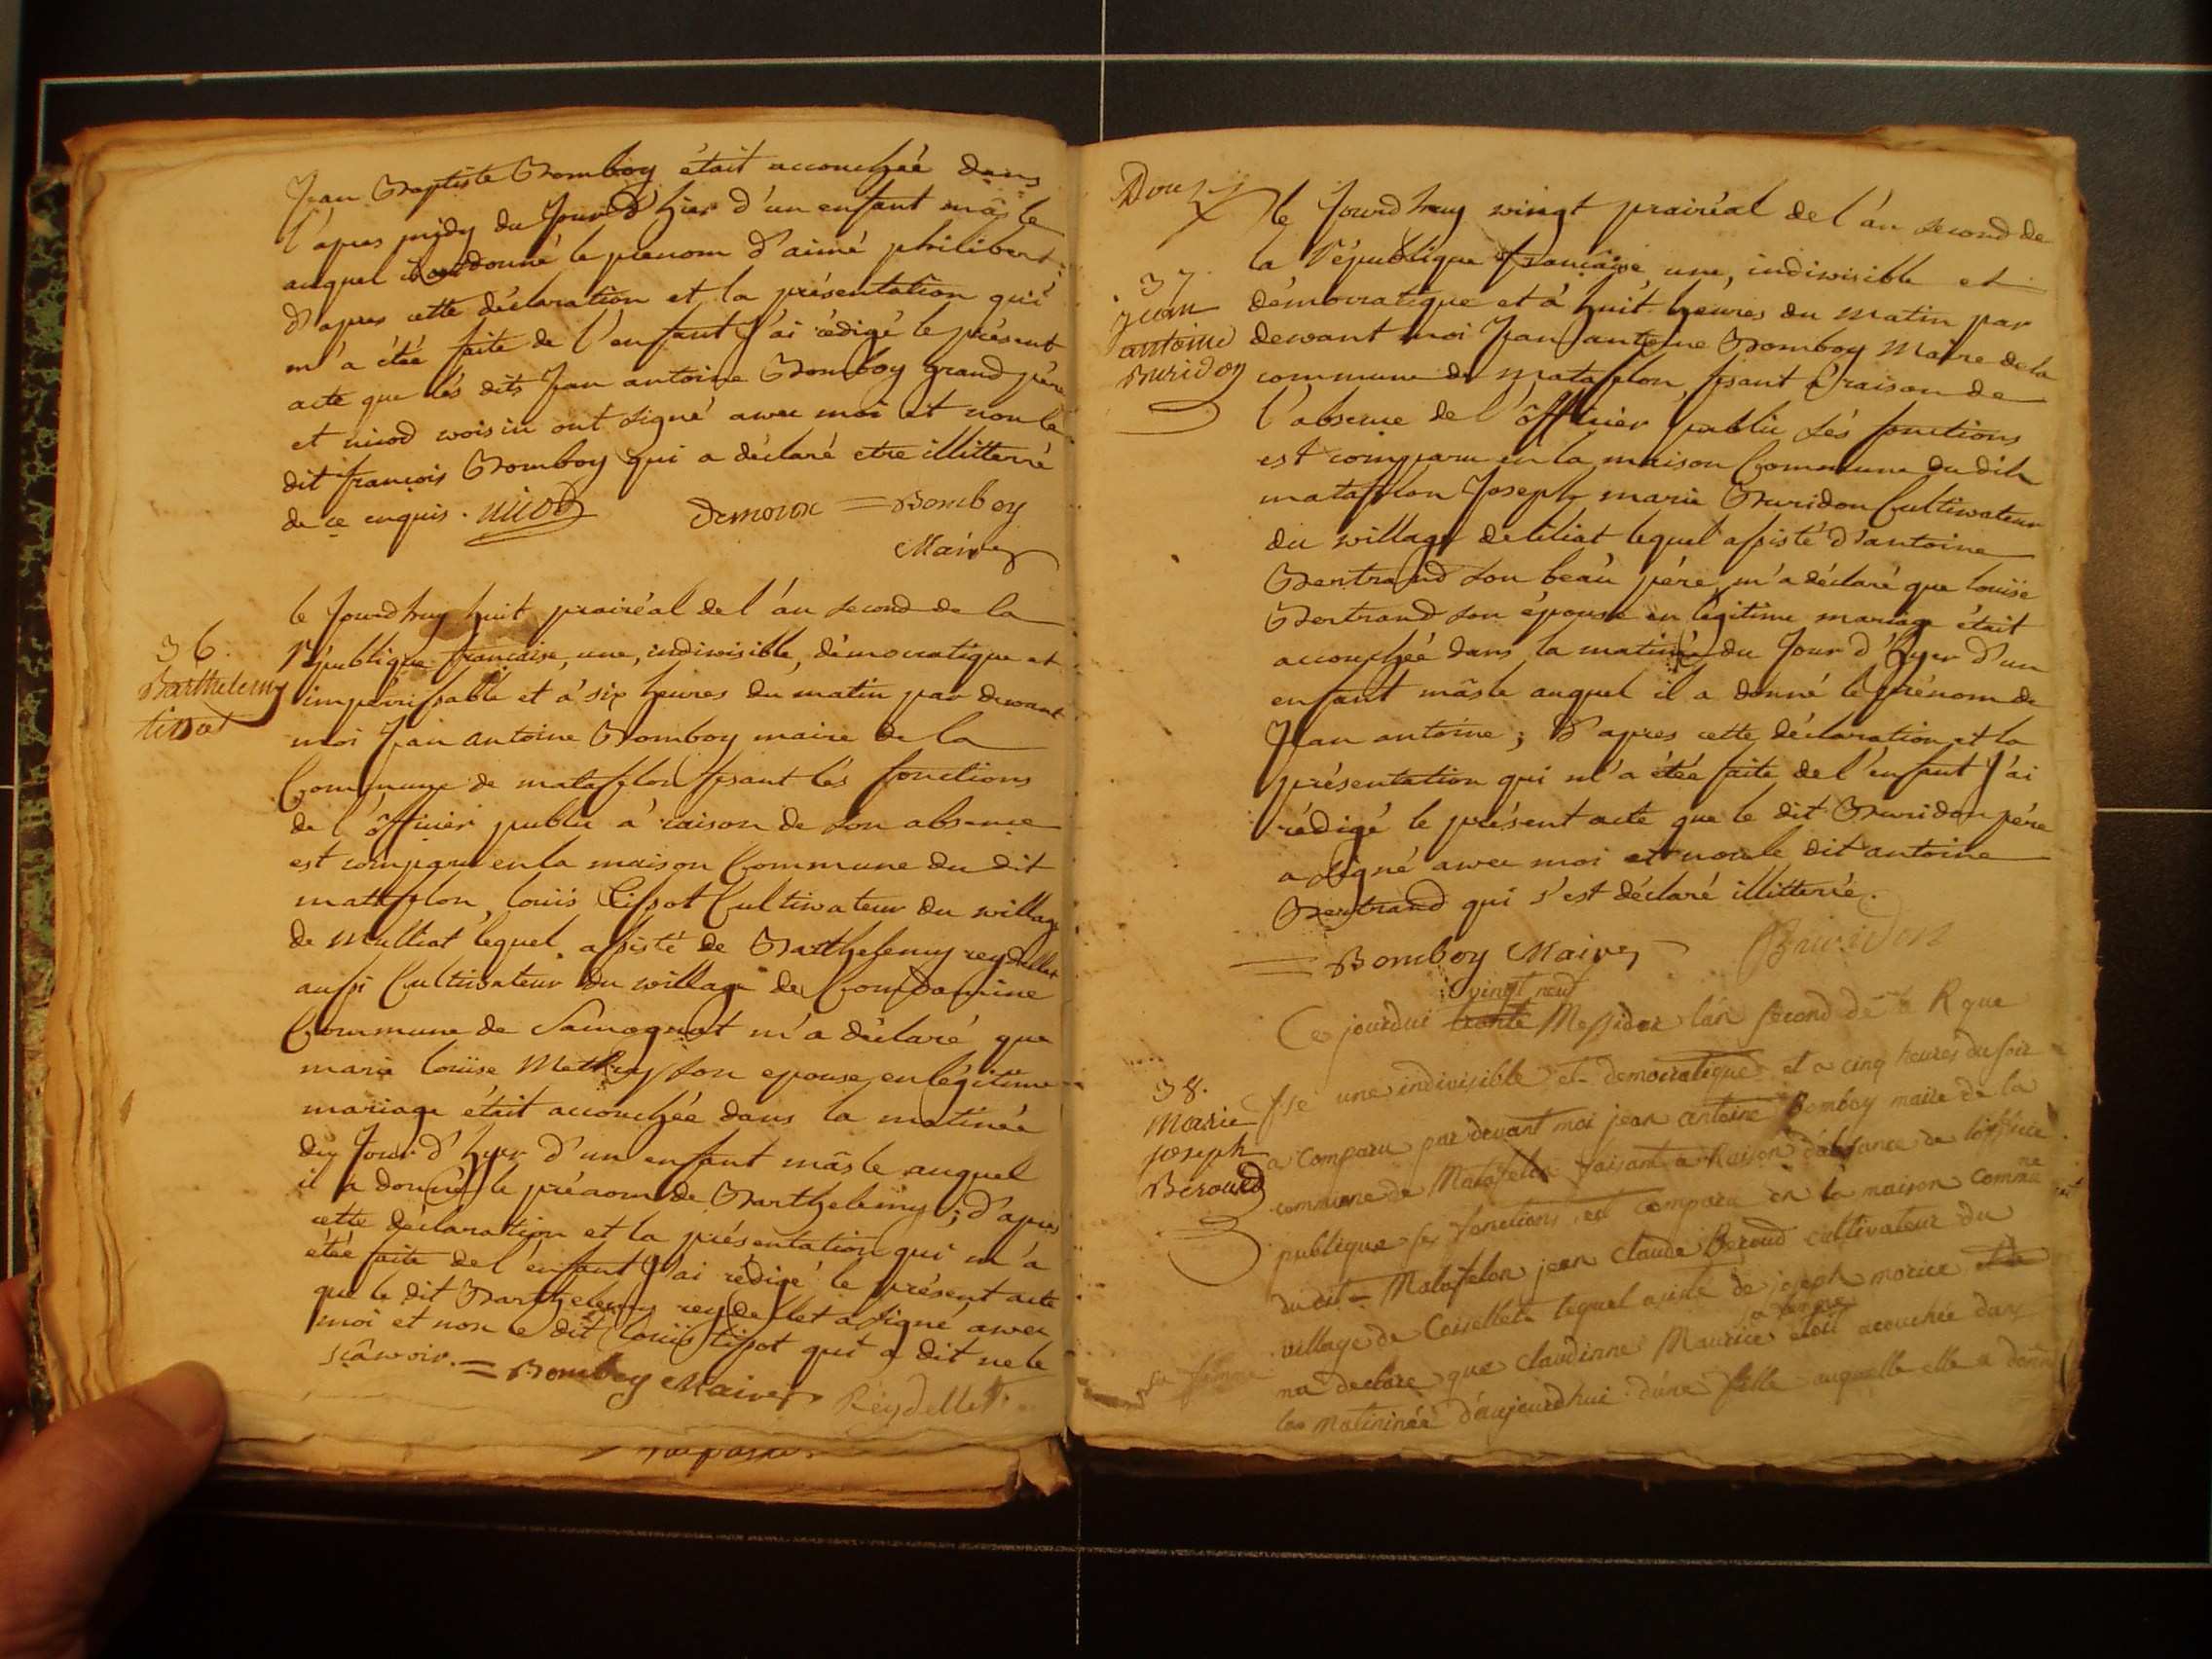 Jean Baptiste Bomboy était accouchéé dans
l'apres midy du Jour d'hier d'un enfant mâsle
auquel il ont donné le prenom d'aimé philibert
d'apres cette déclaration et la présentation qui
m'a étéé faite de l'enfant J'ai rédigé le présent
acte que lés dits Jean antoine Bomboy grand pére
et nicod woisin ont signé awec moi et non le
dit françois Bomboy qui a déclaré etre illitterré
de ce enquis. Nicod Demoux = Bomboy
Maire
36.
Barthelemy
tissot
le Jourdhuy huit prairéal de l'an second de la
République francaise, une, indiwisible, démocratique et
impérissable et à six heures du matin par dewant
moi Jean antoine Bomboy maire de la
Commune de matafelon fesant lés fonctions
de l'ôfficiér public à raison de son absence
est comparu en la maison Commune du dit
matafelon louis tissot Cultiwateur du willage
de Mulliat lequel assisté de Barthelemy reydellet
aussi Cultiwateur du willage de Condamine
Commune de Samognat m'a déclaré que
marie louïse son epouse en légitime
mariage était accouchéé dans la matinéé
du Jour d'hyer d'un enfant mâsle auquel
il a donné le prénom de Barthelemy ; d'apres
cette déclaration et la présentation qui m'a
étéé faite de l'enfant J'ai rédigé le présent acte
que le dit Barthelemy reydellet a signé awec
moi et non le dit louïs tissot qui a dit ne le
sçâwoir. = Bomboy Maire Reydellet.
Douze
37.
jean
antoine
Buridon
le Jourdhuy wingt prairéal de l'an second de
la République francaise une, indiwisible et
démocratique et à huit heures du matin par
dewant moi Jean antoine Bomboy Maire de la
commune de matafelon, fesant à raison de
l'absence de l'ôfficiér public sés fonctions
est comparu en la maison Commune du dit
matafelon Joseph marie Buridon Cultiwateur
du willage de liliat lequel assisté d'antoine
Bertrand son beau pére m'a déclaré que louïse
Bertrand son épouse en légitime mariage était
accouchéé dans la matinéé du Jour d'hyer d'un
enfant mâsle auquel il a donné le prénom de
Jean antoine ; d'apres cette déclaration et la
présentation qui m'a étéé faite de l'enfant J'ai
rédigé le présent acte que le dit Buridon pére
a signé awec moi et non le dit antoine
Bertrand qui s'est déclaré illitterré.
= Bomboy Maire Buridon
vingt neuf
Ce jourdui trante Messidor l'an second de la Rque
38.
Marie
joseph
Beroud
fse une indivisible et democratique et a cinq heures du soir
a comparu par devant moi jean antoine Bomboy maire de la
commune de Matafelon faisant a Raison d'absance de l'officié
publique ses fonctions est comparu en la maison commune
du dit = Matafelon jean claude Beroud cultivateur du
village de Coisellet lequel asisté de joseph morice et de
sa femme
ma declare que claudinne Maurice sa femme etoit acouchée dans
la matininée d'aujourdhui d'une fille auquelle elle a donné